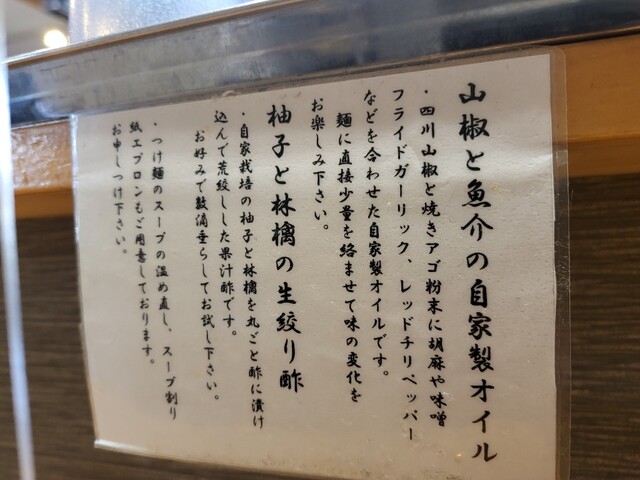 山椒と魚介の自家製オイル
・四川山椒と焼きアゴ粉末に胡麻や味噌
フライドガーリック、レッドチリペッパー
などを合わせた自家製オイルです。
麺に直接少量を絡ませて味の変化を
お楽しみ下さい。
柚子と林檎の生絞り酢
・自家栽培の柚子と林檎を丸ごと酢に漬け
込んで荒絞りした果汁酢です。
お好みで数滴垂らしてお試し下さい。
・つけ麺のスープの温め直し、スープ割り
紙エプロンもご用意しております。
お申しつけ下さい。